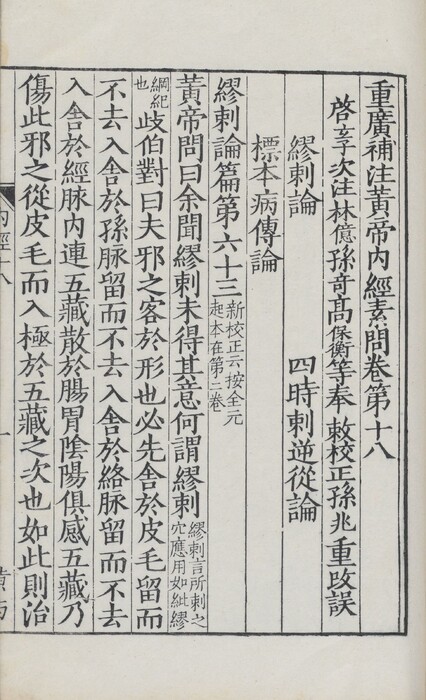 重廣補注黃帝內經素問卷第十八
啓玄子次注林億孫奇高保衡等奉敕校正孫兆重改誤
繆刺論　四時刺逆從論
標本病傳論
繆刺論篇第六十三新校正云按全元起本在第二卷
黃帝問曰余聞繆刺未得其意何謂繆刺繆刺言所刺之穴應用如紕繆
綱紀也岐伯對曰夫邪之客於形也必先舍於皮毛留而
不去入舍於孫脉留而不去入舍於絡脉留而不去
入舍於經脉內連五藏散於腸胃陰陽俱感五藏乃
傷此邪之從皮毛而入極於五藏之次也如此則治
內經十八
一